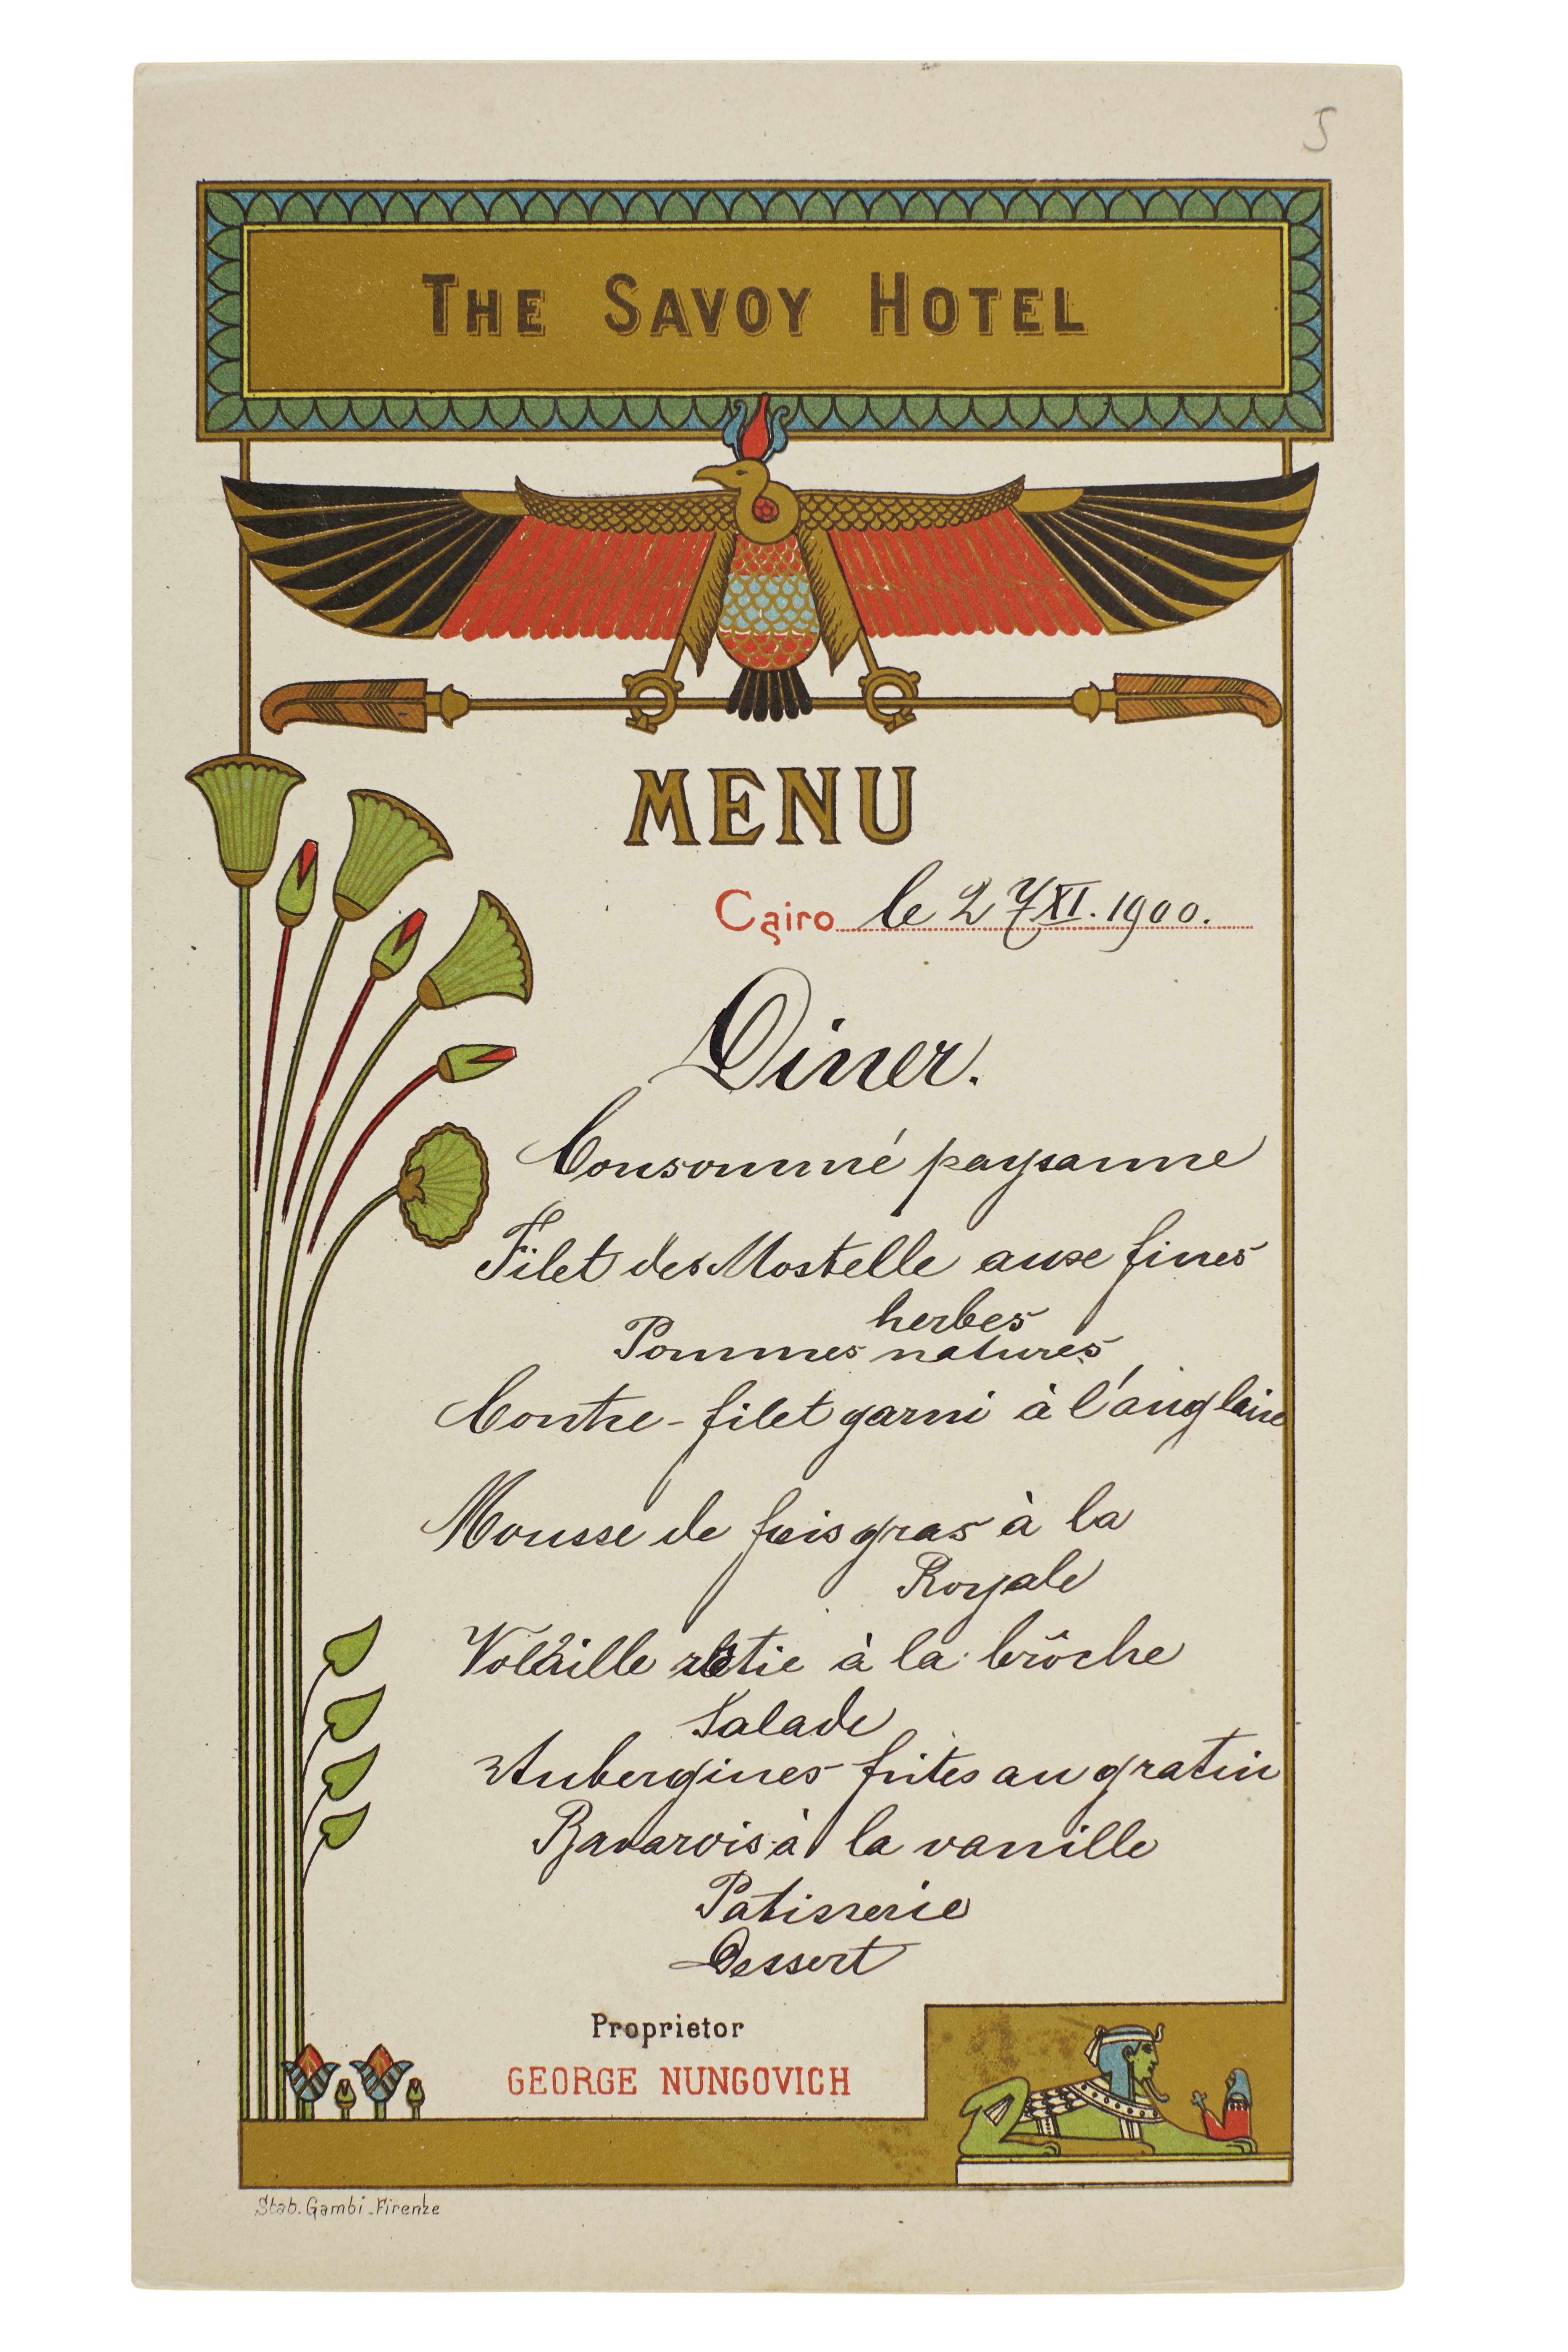 5
THE SAVOY HOTEL
MENU
Cairo le 27 XI. 1900.
Diner.
Consommé paysanne
Filet des Mostelle aux fines
herbes
Pommes natures
Contre-filet garni à l'anglaise
Mousse de fois gras à la
Royale
Volaille rôtie à la brôche
Salade
Aubergines frites au gratin
Bavarois à la vanille
Patisserie
Dessert
Proprietor
GEORGE NUNGOVICH
Stab. Gambi-Firenze